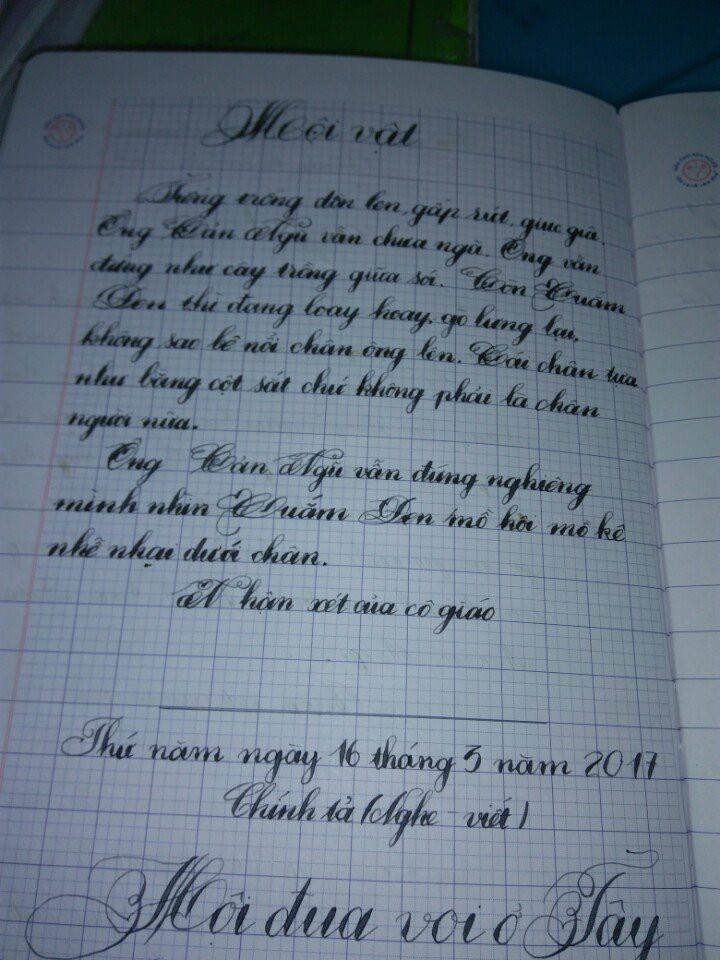 Hội vật
Tiếng trống dồn lên, gấp rút, giục giã.
Ông Cản Ngũ vẫn chưa ngã. Ông vẫn
đứng như cây trồng giữa sới. Còn Quắm
Đen thì đang loay hoay, gò lưng lại,
không sao bê nổi chân ông lên. Cái chân tựa
như bằng cột sắt chứ không phải là chân
người nữa.
Ông Cản Ngũ vẫn đứng nghiêng
mình nhìn Quắm Đen mồ hôi mồ kê
nhễ nhại dưới chân.
Nhận xét của cô giáo
Thứ năm ngày 16 tháng 5 năm 2017
Chính tả (Nghe viết)
Hội đua voi ở Tây